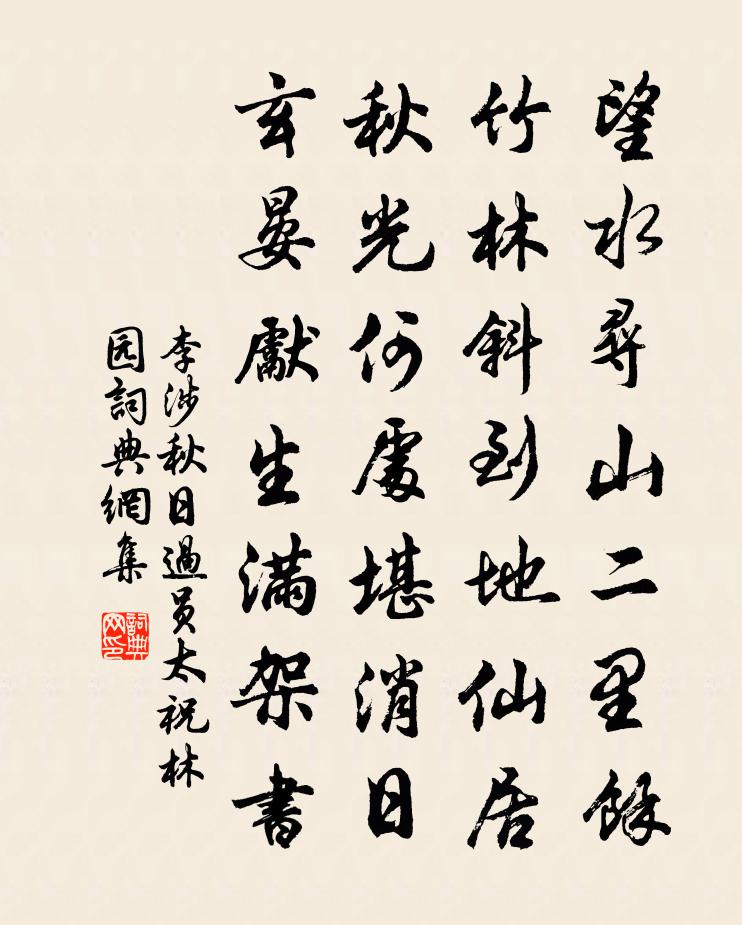 望水尋山二里餘
竹林斜到地仙居
秋光何處堪消日
玄晏獻生滿架書
李涉秋日過员太祝林
园詞典網集
詞典
网印